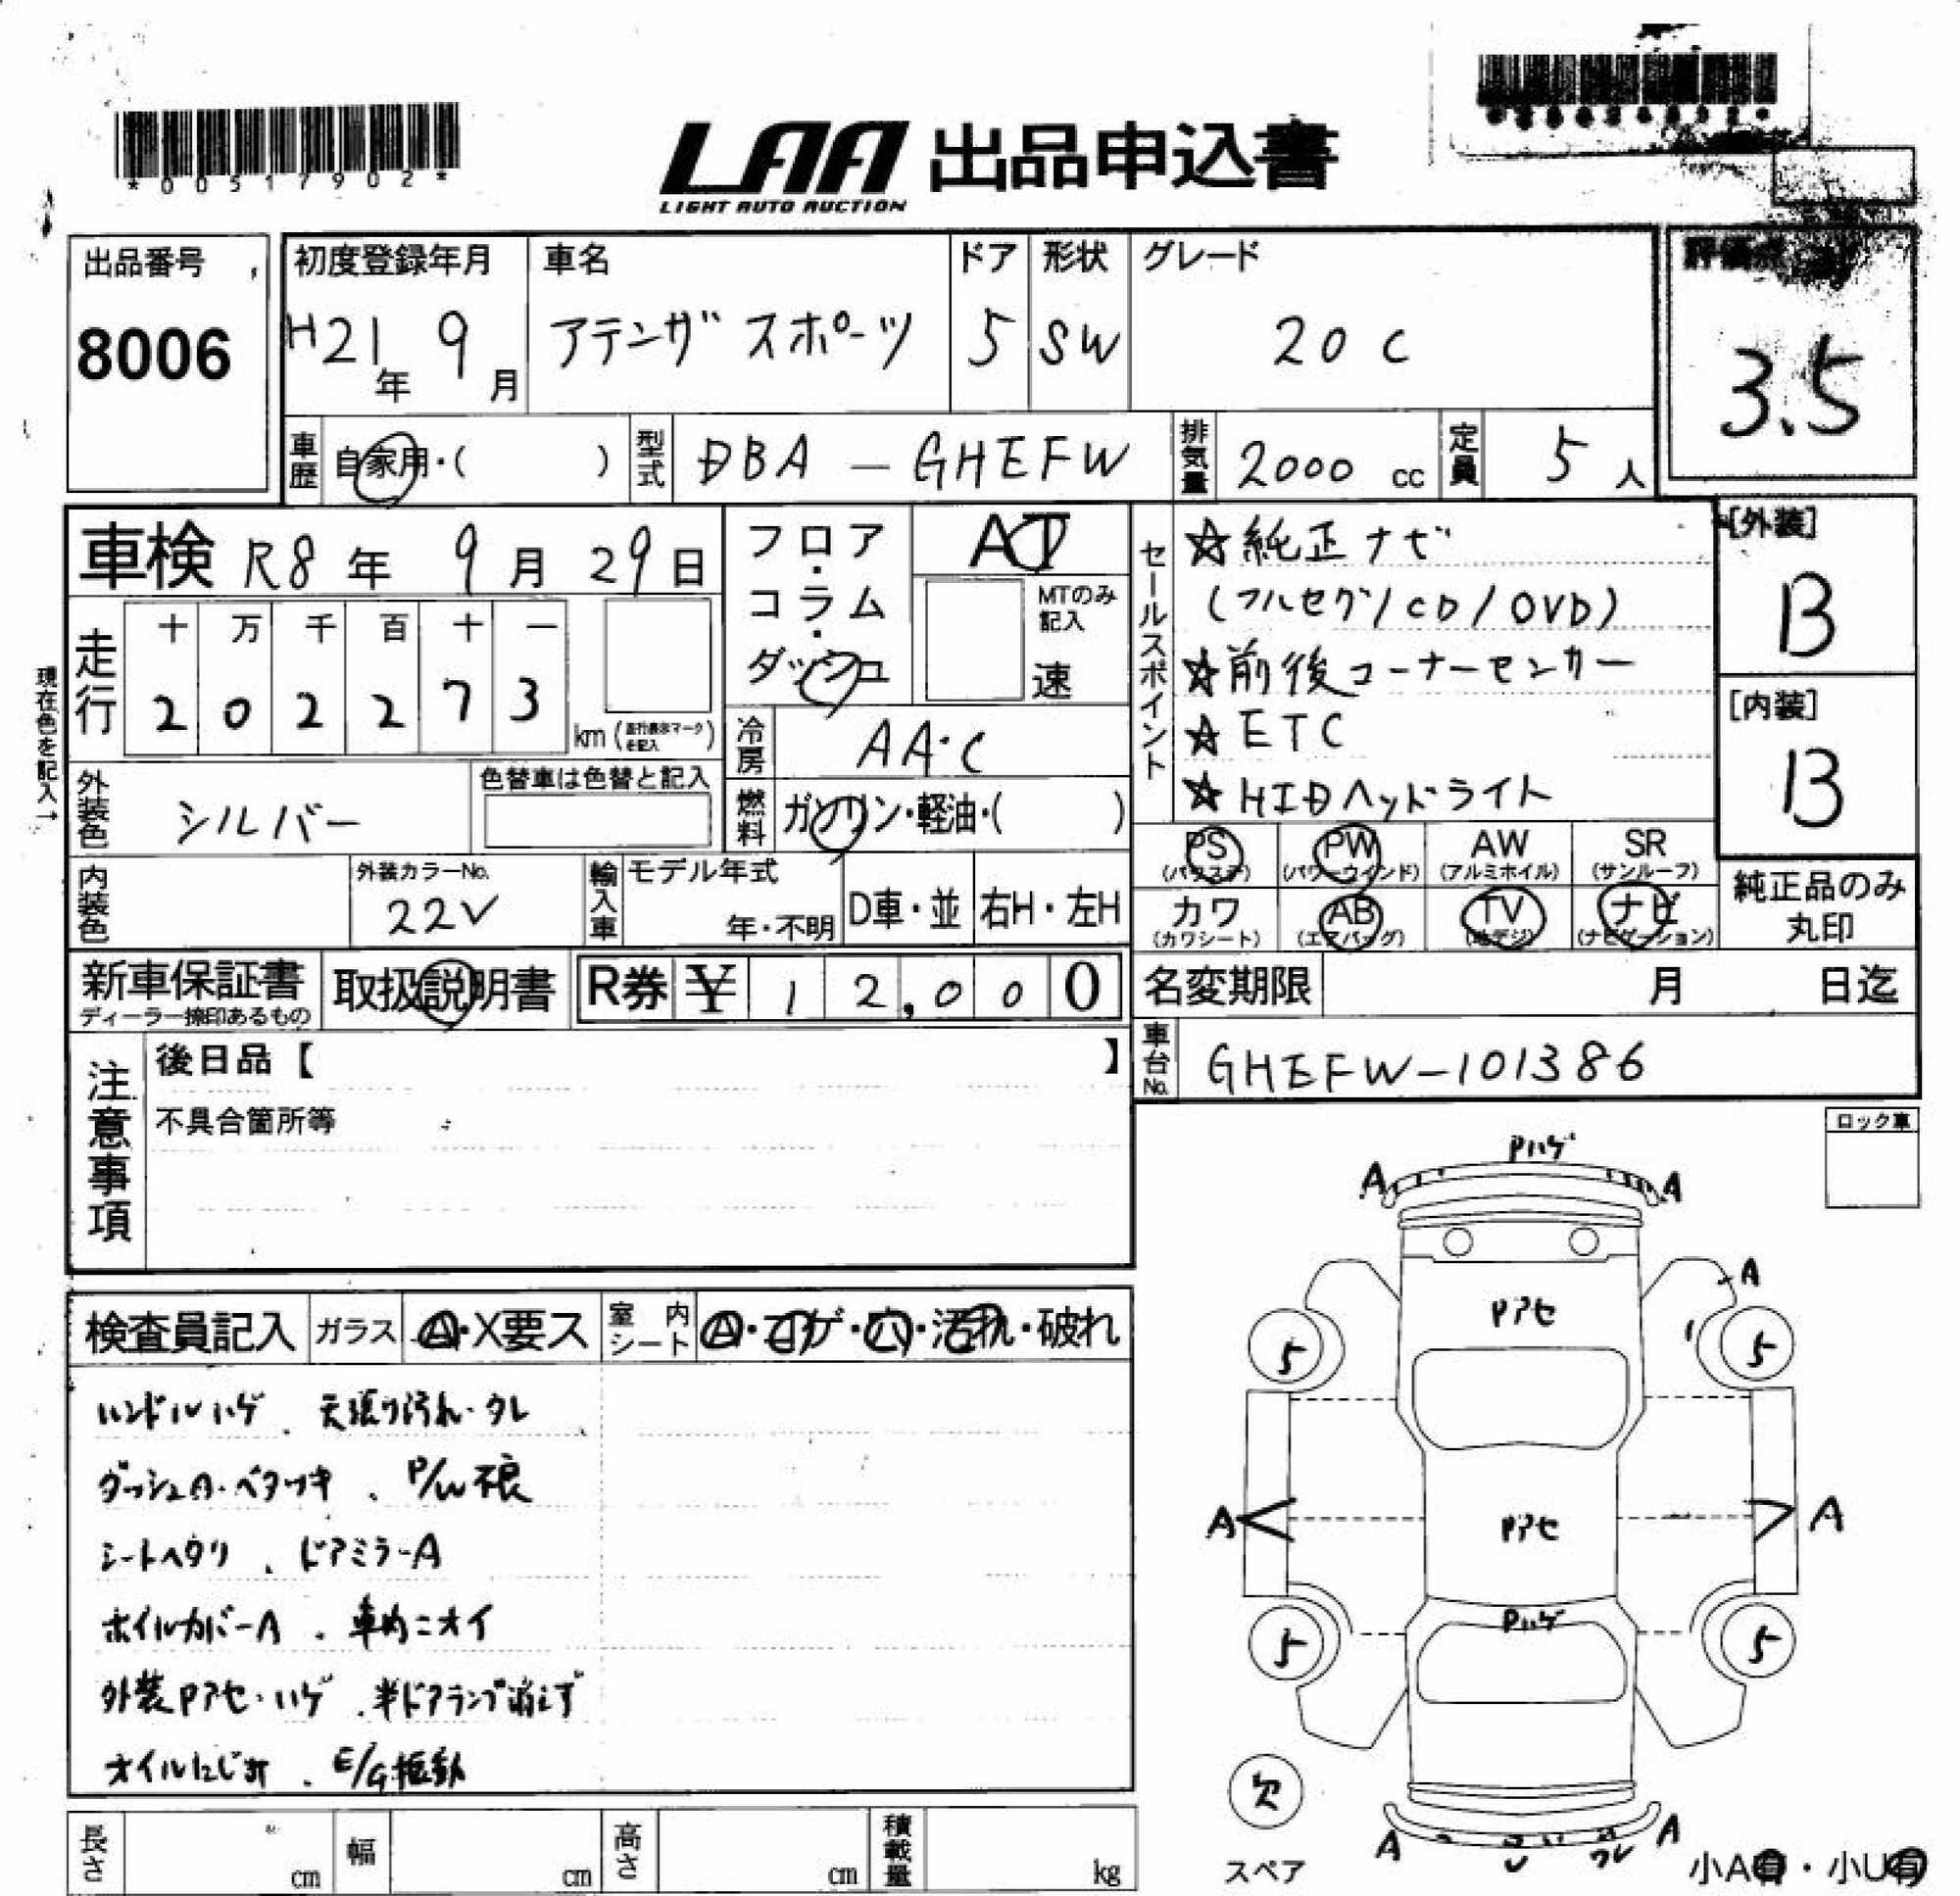 *00517902*
LAA 出品申込書
LIGHT AUTO AUCTION
出品番号
8006
初度登録年月
H21年 9月
車名
アテンザ スポーツ
ドア
5
形状
SW
グレード
20C
3.5
車歴
自家用・( )
型式
DBA - GHEFW
排気量
2000 cc
定員
5人
車検 R8年 9月 29日
フロア・コラム・ダッシュ
AT
MTのみ記入
速
セールスポイント
☆純正ナビ
(フルセグ/CD/DVD)
☆前後コーナーセンサー
☆ETC
☆HIDヘッドライト
[外装]
B
[内装]
B
現在色を記入→
走行
十 万 千 百 十 一
2 0 2 2 7 3
km
冷房
AA・C
外装色
シルバー
色替車は色替と記入
燃料
ガソリン・軽油・( )
PS
(パワステ)
PW
(パワーウインド)
AW
(アルミホイル)
SR
(サンルーフ)
カワ
(カワシート)
AB
(エアバッグ)
TV
(地デジ)
ナビ
(ナビゲーション)
純正品のみ
丸印
内装色
外装カラーNo.
22V
輸入車
モデル年式
年・不明
D車・並
右H・左H
新車保証書
ディーラー捺印あるもの
取扱説明書
R券 ¥ 12,000
名変期限 月 日迄
注意事項
後日品【 】
不具合箇所等
車台No.
GHEFW-101386
ロック車
検査員記入
ガラス
A・X要ス
室内シート
A・コゲ・穴・汚れ・破れ
ハンドルハゲ、天張り汚れ・タレ
ダッシュA・ベタツキ、P/W不良
シートヘタリ、ドアミラーA
ホイルカバーA、車内ニオイ
外装Pアセ・ハゲ、半ドアランプ消えず
オイルにじみ、E/G振動
Pハゲ
A A
A
Pアセ
5 5
A Pアセ A
Pハゲ
5 5
欠
スペア
A U ワレ A
小A有・小U有
長さ cm
幅 cm
高さ cm
積載量 kg